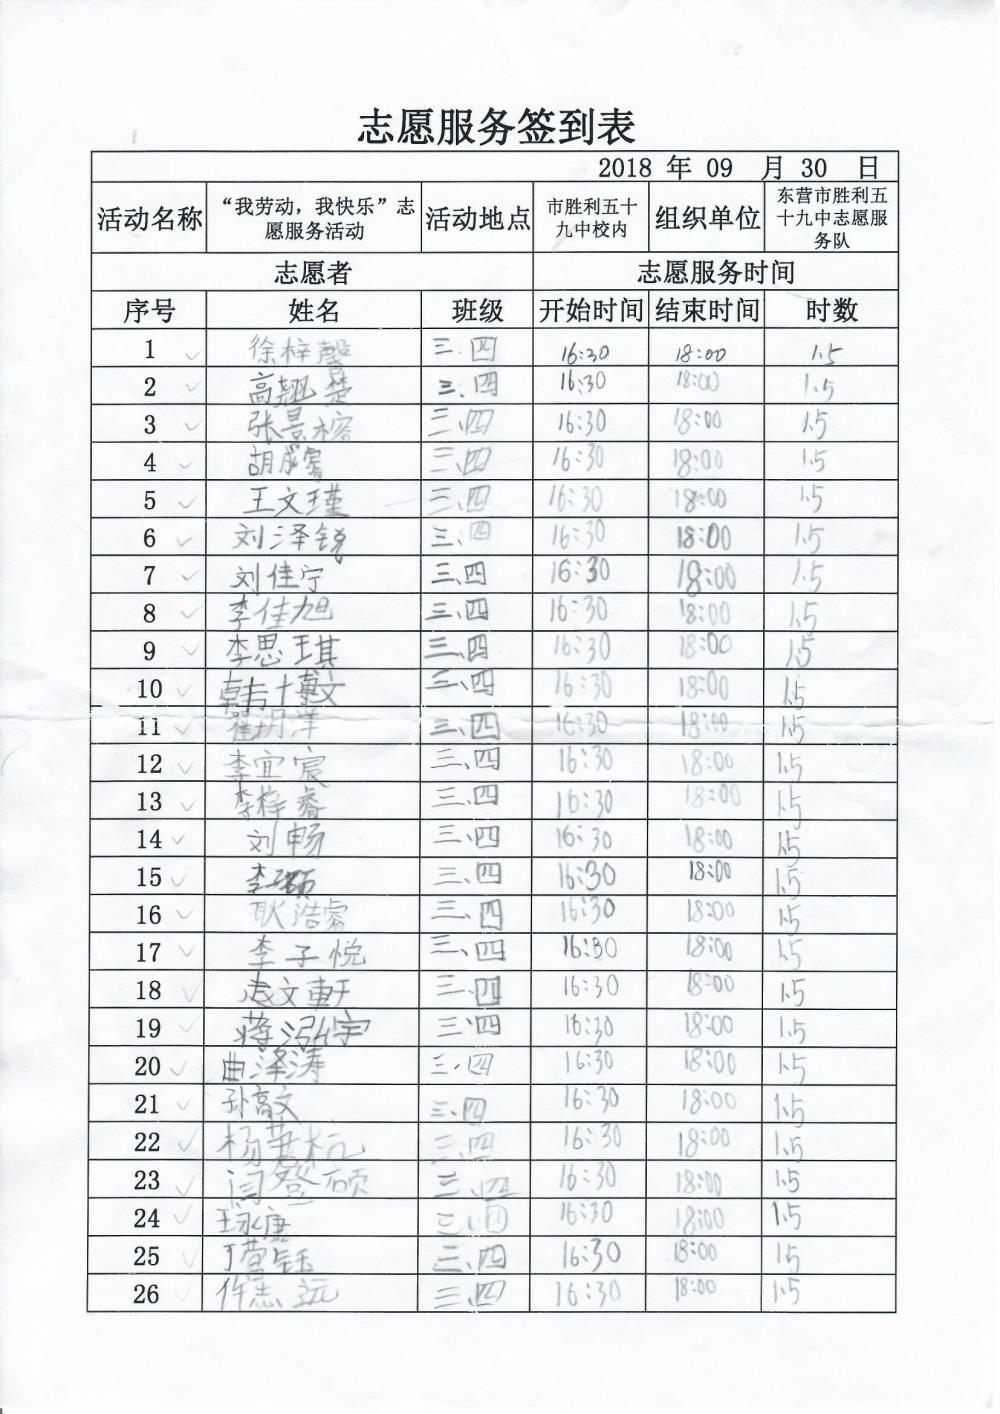 志愿服务签到表
2018 年 09 月 30 日
活动名称 “我劳动，我快乐”志愿服务活动 活动地点 市胜利五十九中校内 组织单位 东营市胜利五十九中志愿服务队
志愿者 志愿服务时间
序号 姓名 班级 开始时间 结束时间 时数
1 徐梓馨 三.四 16:30 18:00 1.5
2 高翘楚 三、四 16:30 18:00 1.5
3 张景榕 三、四 16:30 18:00 1.5
4 胡成睿 三、四 16:30 18:00 1.5
5 王文瑾 三、四 16:30 18:00 1.5
6 刘泽锐 三、四 16:30 18:00 1.5
7 刘佳宁 三、四 16:30 18:00 1.5
8 李佳旭 三、四 16:30 18:00 1.5
9 李思琪 三、四 16:30 18:00 1.5
10 韩博文 三、四 16:30 18:00 1.5
11 三、四 16:30 18:00 1.5
12 李宜宸 三、四 16:30 18:00 1.5
13 李梓睿 三、四 16:30 18:00 1.5
14 刘畅 三、四 16:30 18:00 1.5
15 李硕 三、四 16:30 18:00 1.5
16 耿浩睿 三、四 16:30 18:00 1.5
17 李子悦 三、四 16:30 18:00 1.5
18 文軒 三、四 16:30 18:00 1.5
19 蒋泓宇 三、四 16:30 18:00 1.5
20 曲泽涛 三、四 16:30 18:00 1.5
21 孙高文 三、四 16:30 18:00 1.5
22 杨 三、四 16:30 18:00 1.5
23 闫登硕 三、四 16:30 18:00 1.5
24 王永唐 三、四 16:30 18:00 1.5
25 丁营钰 三、四 16:30 18:00 1.5
26 志远 三、四 16:30 18:00 1.5